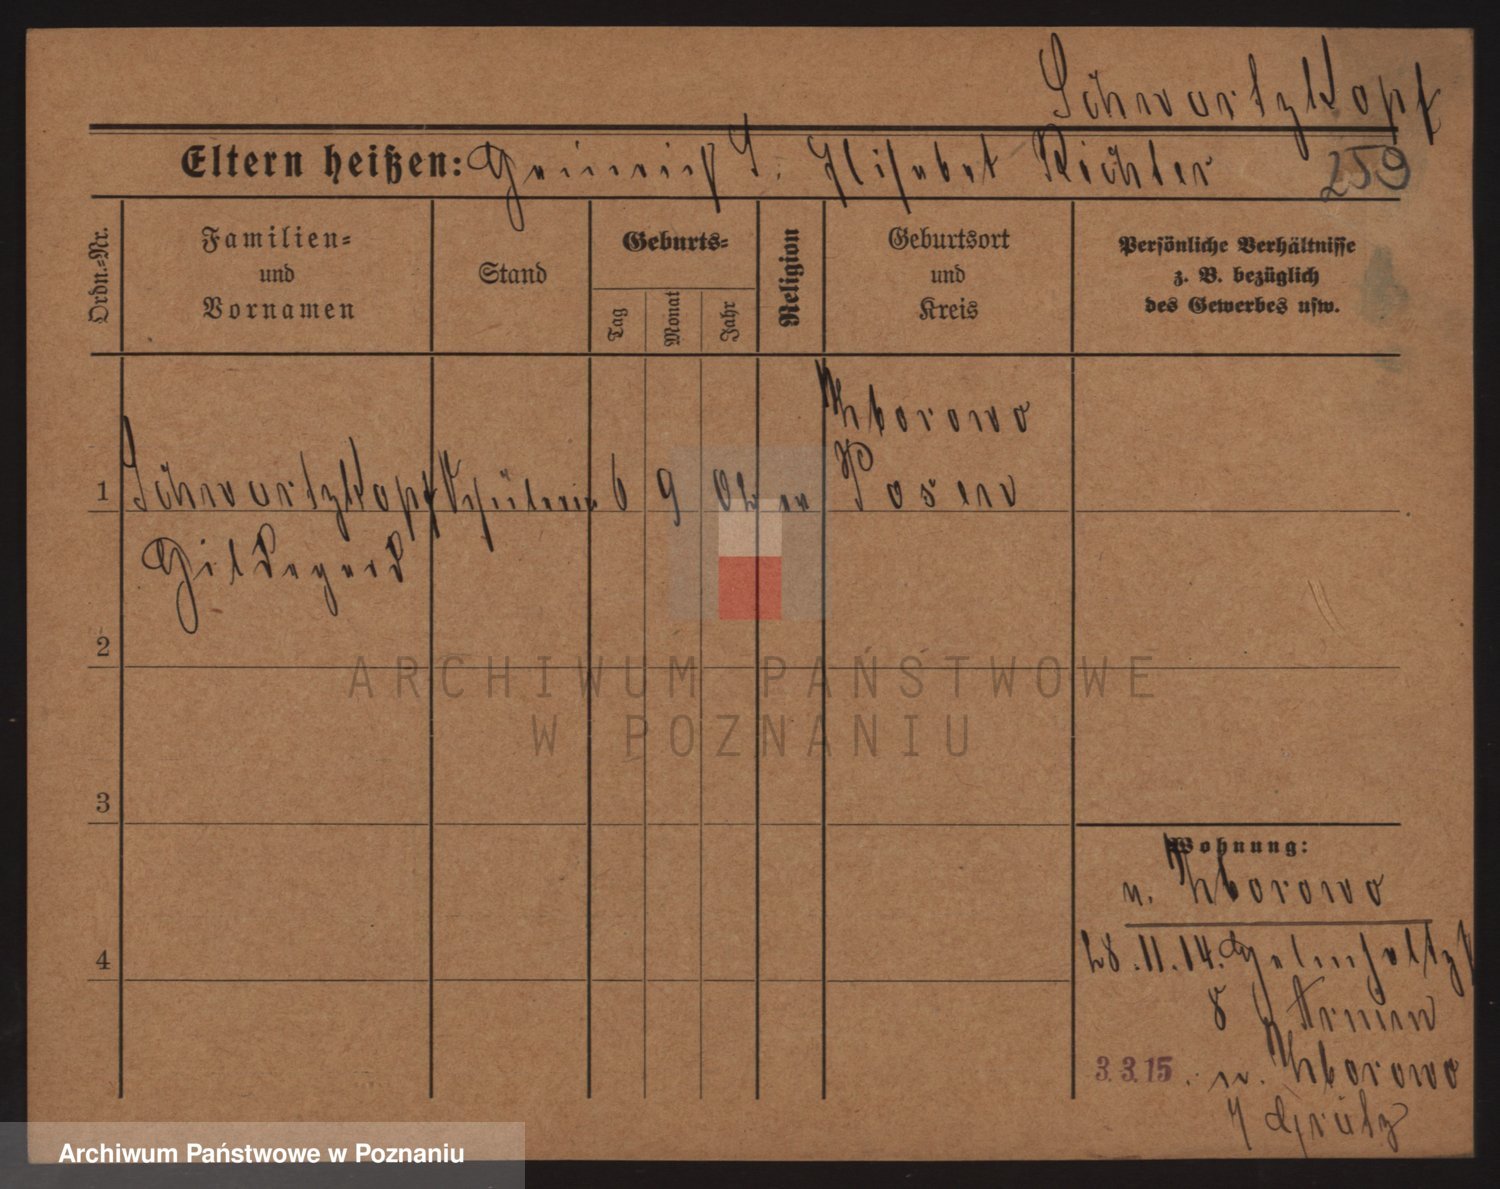 Schwartzkopf
Eltern heißen: Heinrich S. Elisabet Richter 259
Ordn.-Nr.
Familien-
und
Vornamen
Stand
Geburts-
Tag
Monat
Jahr
Religion
Geburtsort
und
Kreis
Persönliche Verhältnisse
z. B. bezüglich
des Gewerbes usw.
Zborowo
1 Schwartzkopf Schülerin 6 9 02 ev Posen
Hildegard
2
3
4
Wohnung:
n. Zborowo
28.11.14. Helmholtz
8 Armin
3.3.15. n. Zborowo
Grätz
ARCHIWUM PAŃSTWOWE
W POZNANIU
Archiwum Państwowe w Poznaniu